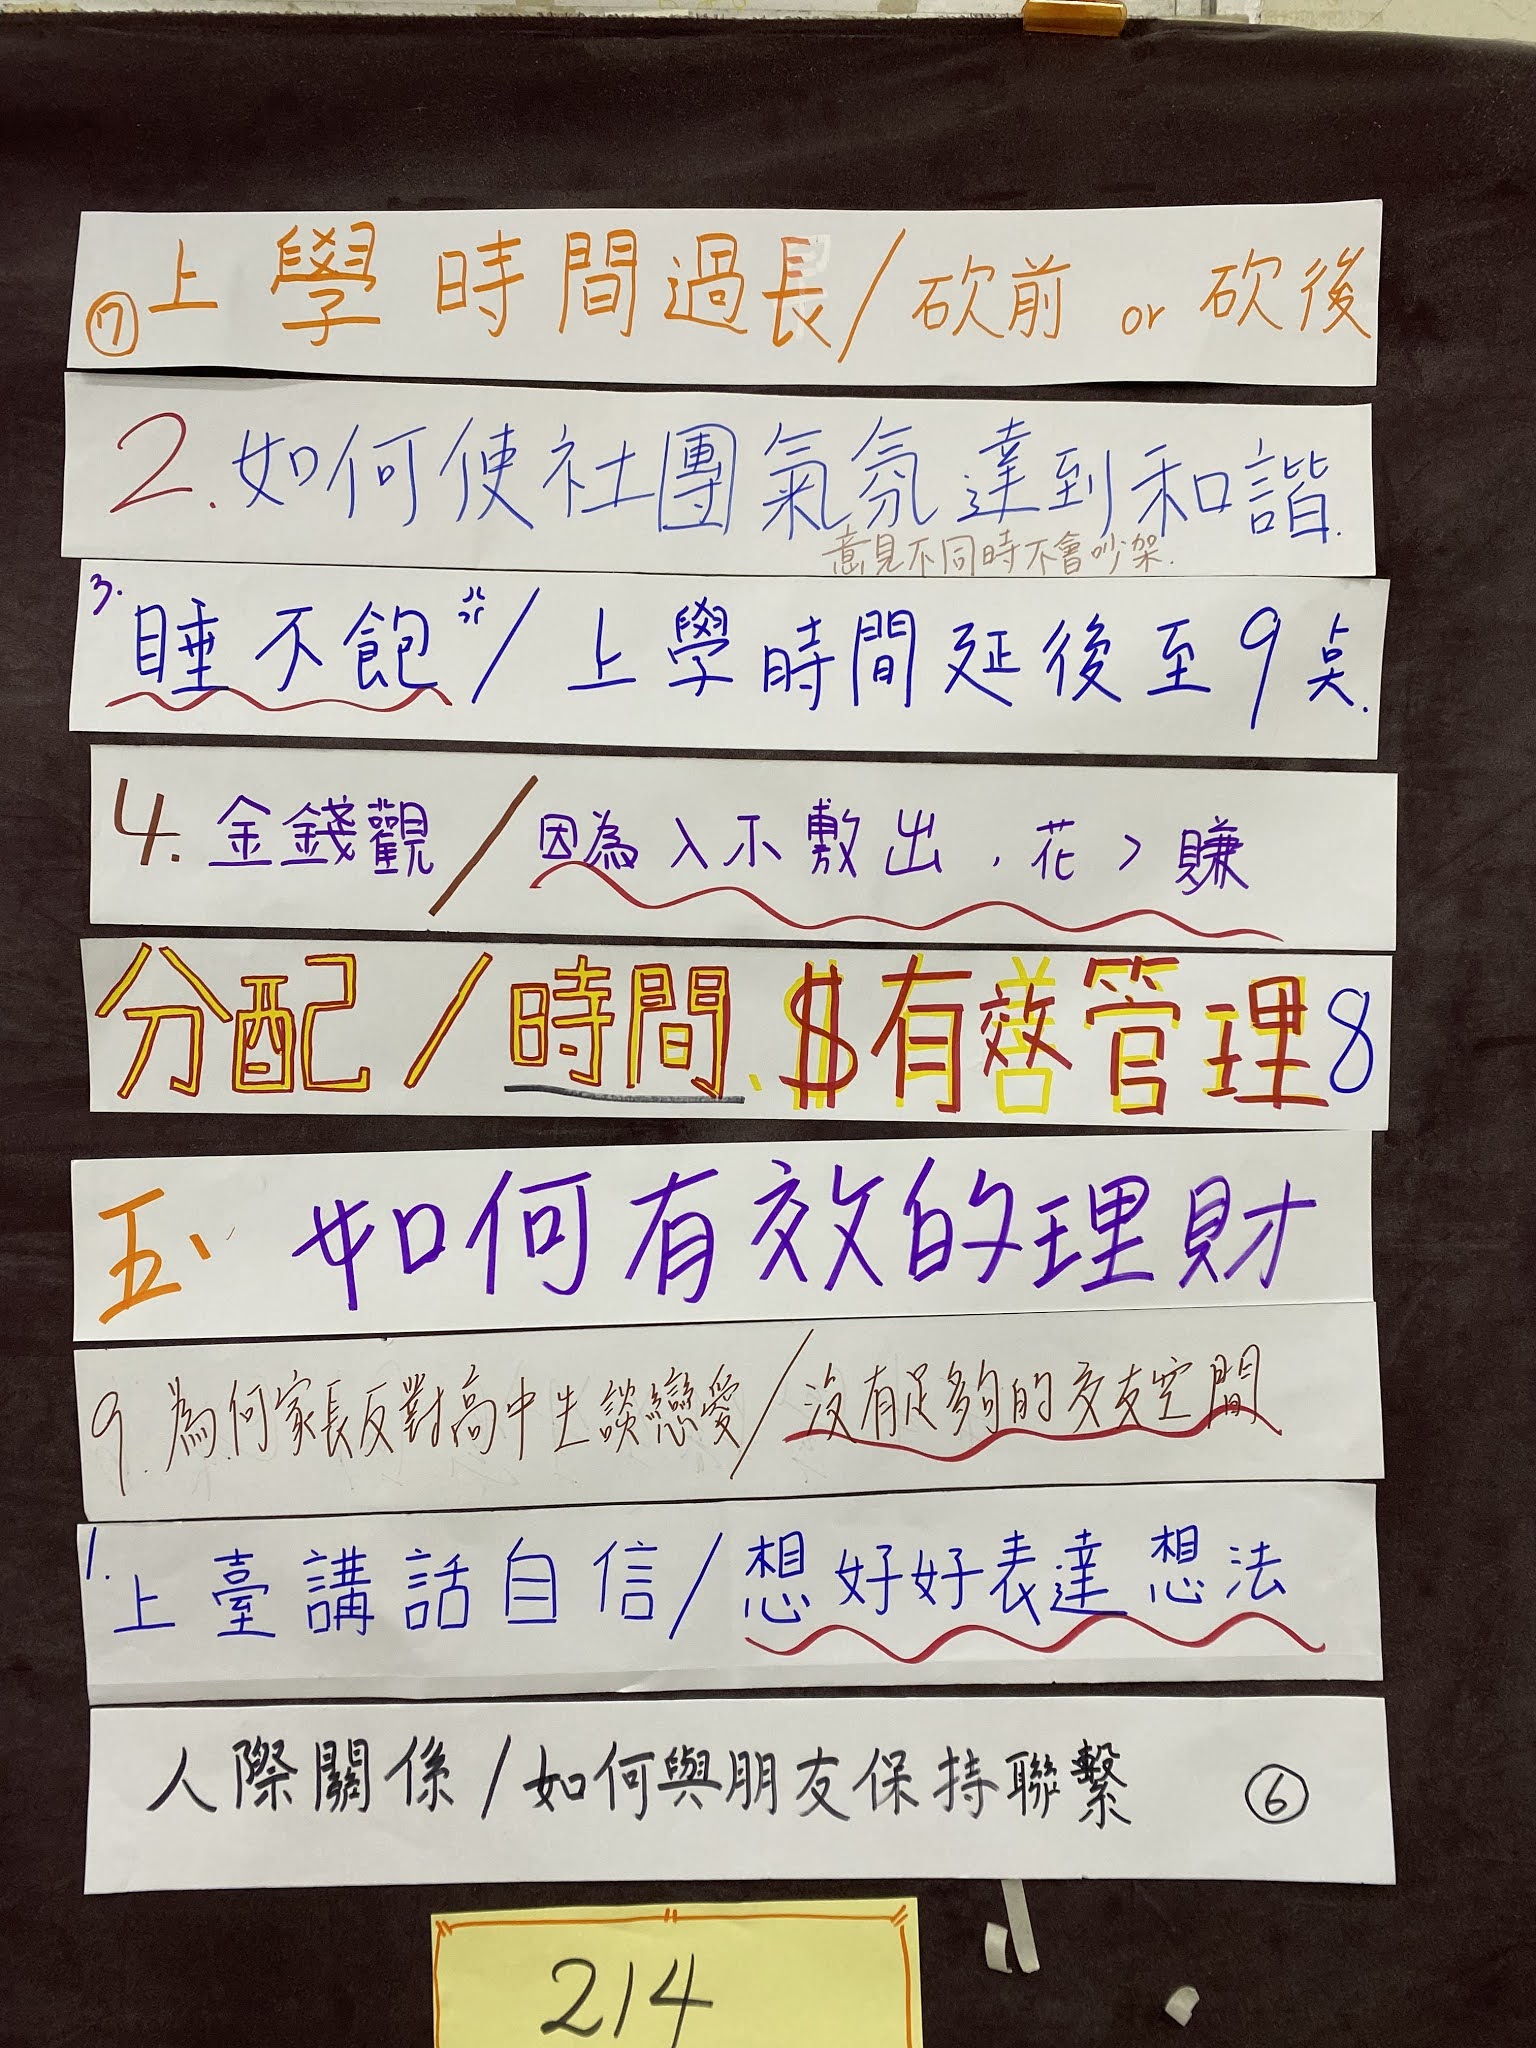 ⑦上學時間過長/砍前 or 砍後
2.如何使社團氣氛達到和諧.
意見不同時不會吵架.
3.睡不飽/上學時間延後至9点.
4.金錢觀/因為入不敷出,花>賺
分配/時間、$有效管理8
五、如何有效的理財
9.為何家長反對高中生談戀愛/沒有足夠的交友空間
1.上臺講話自信/想好好表達想法
人際關係/如何與朋友保持聯繫 ⑥
214